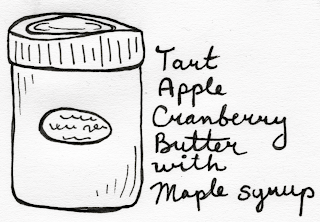 Tart
Apple
Cranberry
Butter
with
Maple syrup